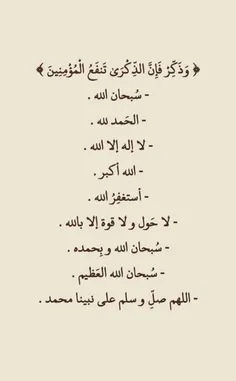 ﴿ وَذَكِّرْ فَإِنَّ الذِّكْرَىٰ تَنفَعُ الْمُؤْمِنِينَ ﴾
- سُبحان الله .
- الحَمد لله .
- لا إله إلا الله .
- الله أكبر .
- أستغفِرُ الله .
- لا حَول و لا قوة إلا بالله .
- سُبحان الله و بِحمده .
- سُبحان الله العَظيم .
- اللهم صلِّ و سلم على نبينا محمد .